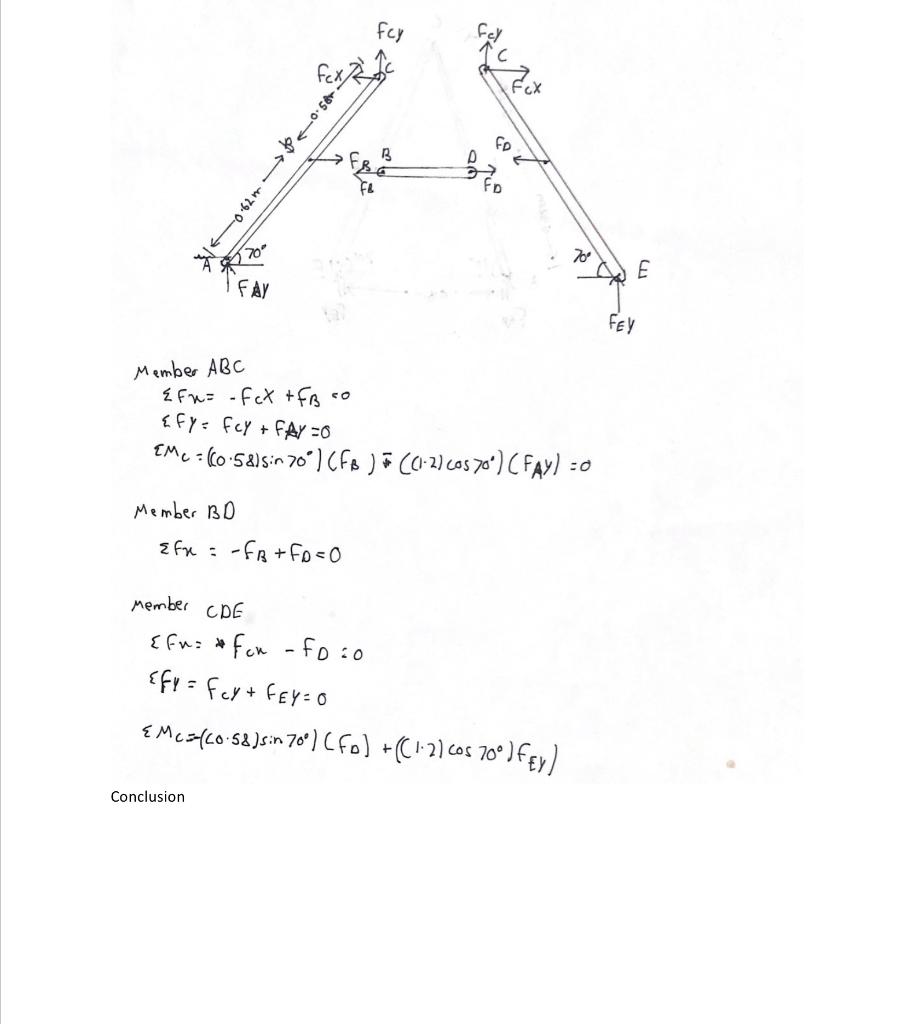 Fcy
Fcy
C
C
Fcx
Fcx
0.58m
B
0.62m
FB
B
D
FD
FB
FD
70°
A
70°
E
FAY
FEY
Member ABC
ΣFx= -Fcx +FB =0
ΣFy= Fcy + FAY =0
ΣMc = ((0.58)sin 70°) (FB) - ((1.2) cos 70°) (FAY) =0
Member BD
ΣFx = -FB + FD = 0
Member CDE
ΣFx= Fcx - FD =0
ΣFy = Fcy + FEY = 0
ΣMc=-((0.58)sin 70°) (FD) + ((1.2) cos 70°) FEY)
Conclusion